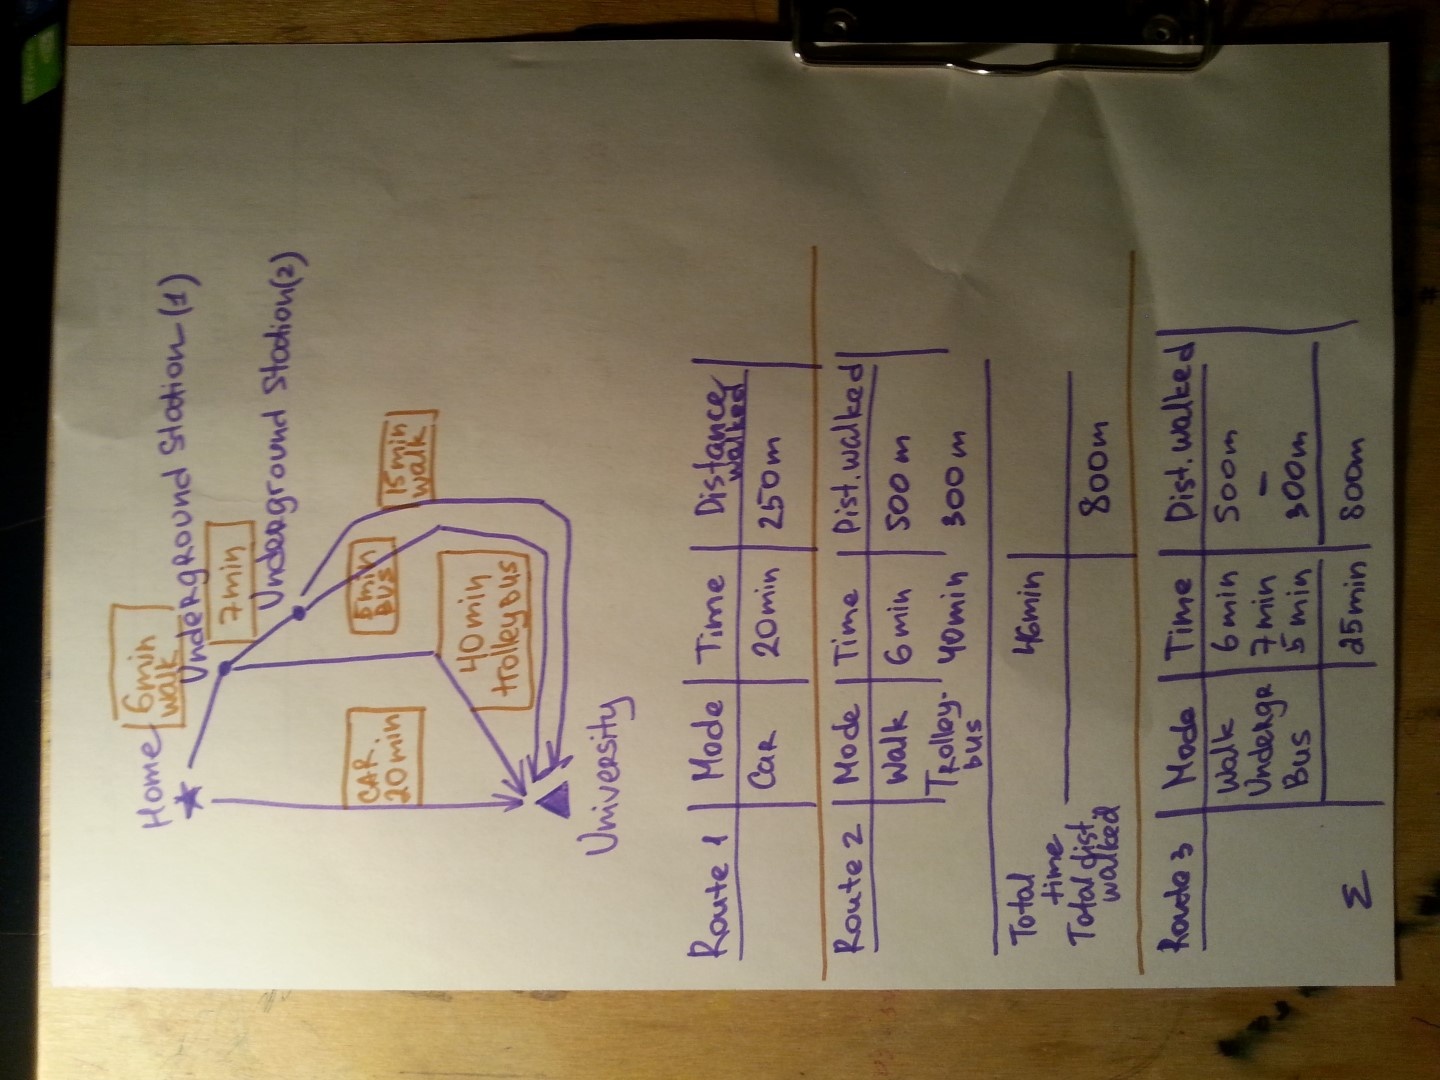 Home
6min
walk
Underground Station (1)
7min
Underground Station(2)
CAR
20min
5min
BUS
15min
walk
40min
trolleyBUS
University
Route 1 Mode Time Distance
walked
Car 20min 250m
Route 2 Mode Time Dist.walked
Walk 6min 500m
Trolley- 40min 300m
bus
Total 46min
time
Total dist 800m
walked
Route 3 Mode Time Dist.walked
Walk 6min 500m
Undergr 7min –
Bus 5min 300m
Σ 25min 800m